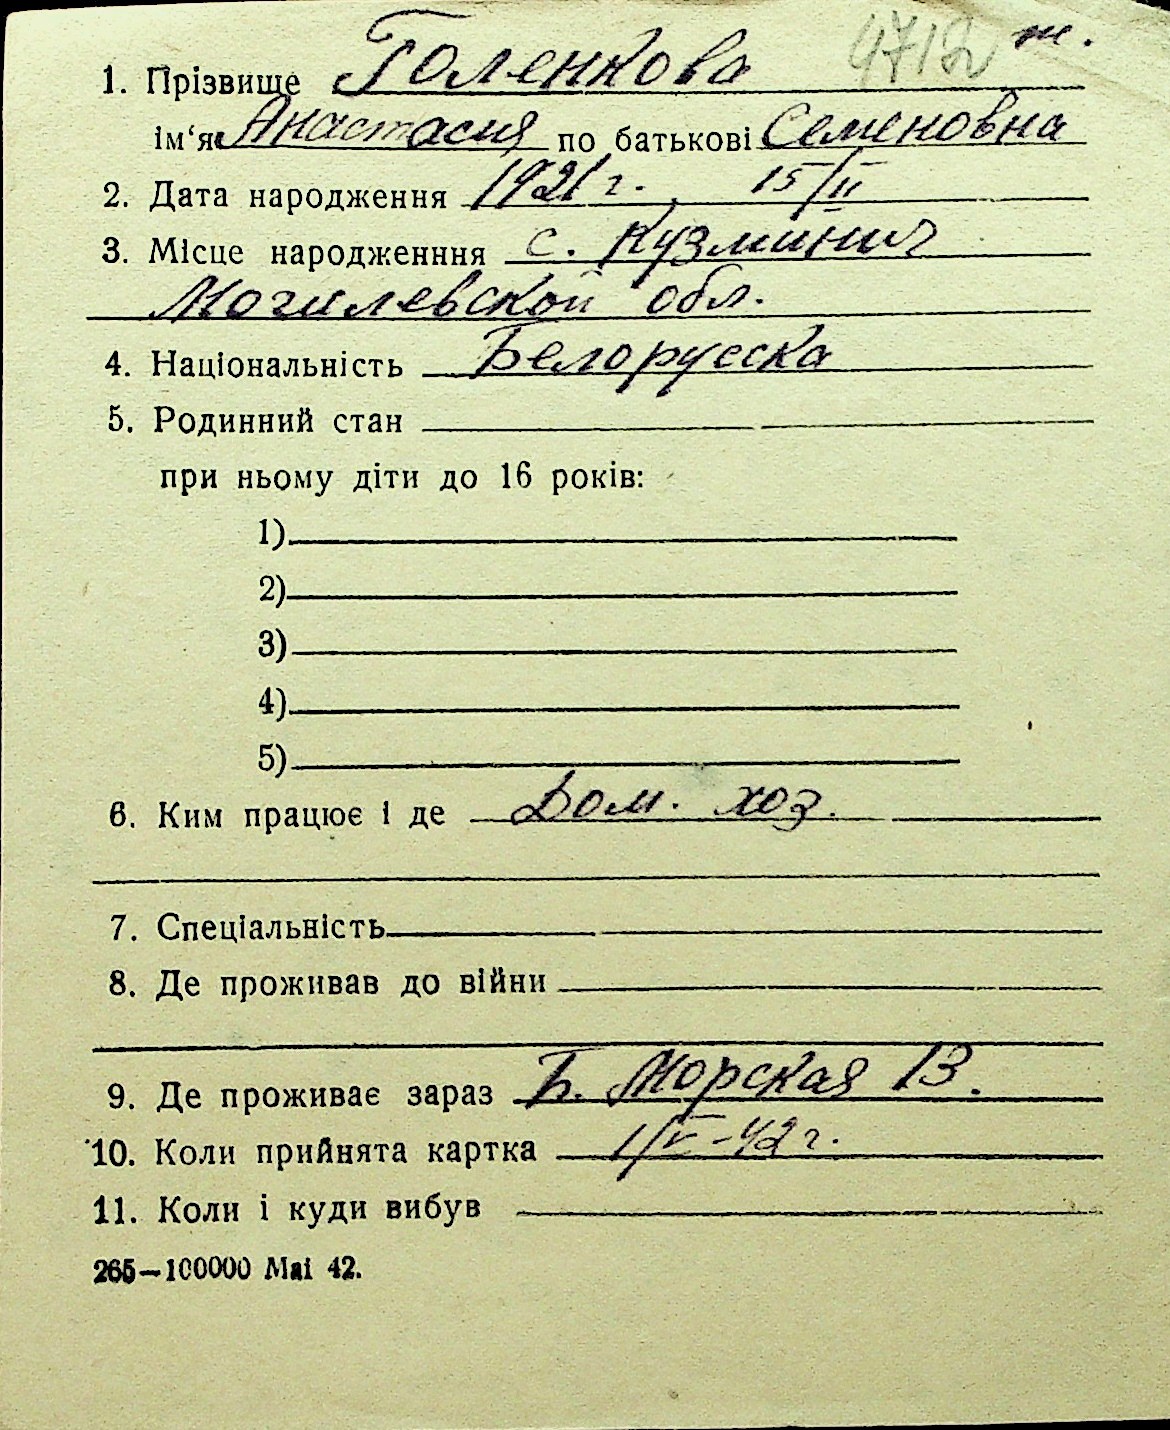 4712 ж.
1. Прізвище Голенкова
ім‘я Анастасия по батькові Семеновна
2. Дата народження 1921 г. 15/II
3. Місце народженння с. Кузминич
Могилевской обл.
4. Національність Белорусска
5. Родинний стан
при ньому діти до 16 років:
1)
2)
3)
4)
5)
6. Ким працює і де Дом. хоз.
7. Спеціальність
8. Де проживав до війни
9. Де проживає зараз Б. Морская 13.
10. Коли прийнята картка 1/V-42 г.
11. Коли і куди вибув
265—100000 Mai 42.